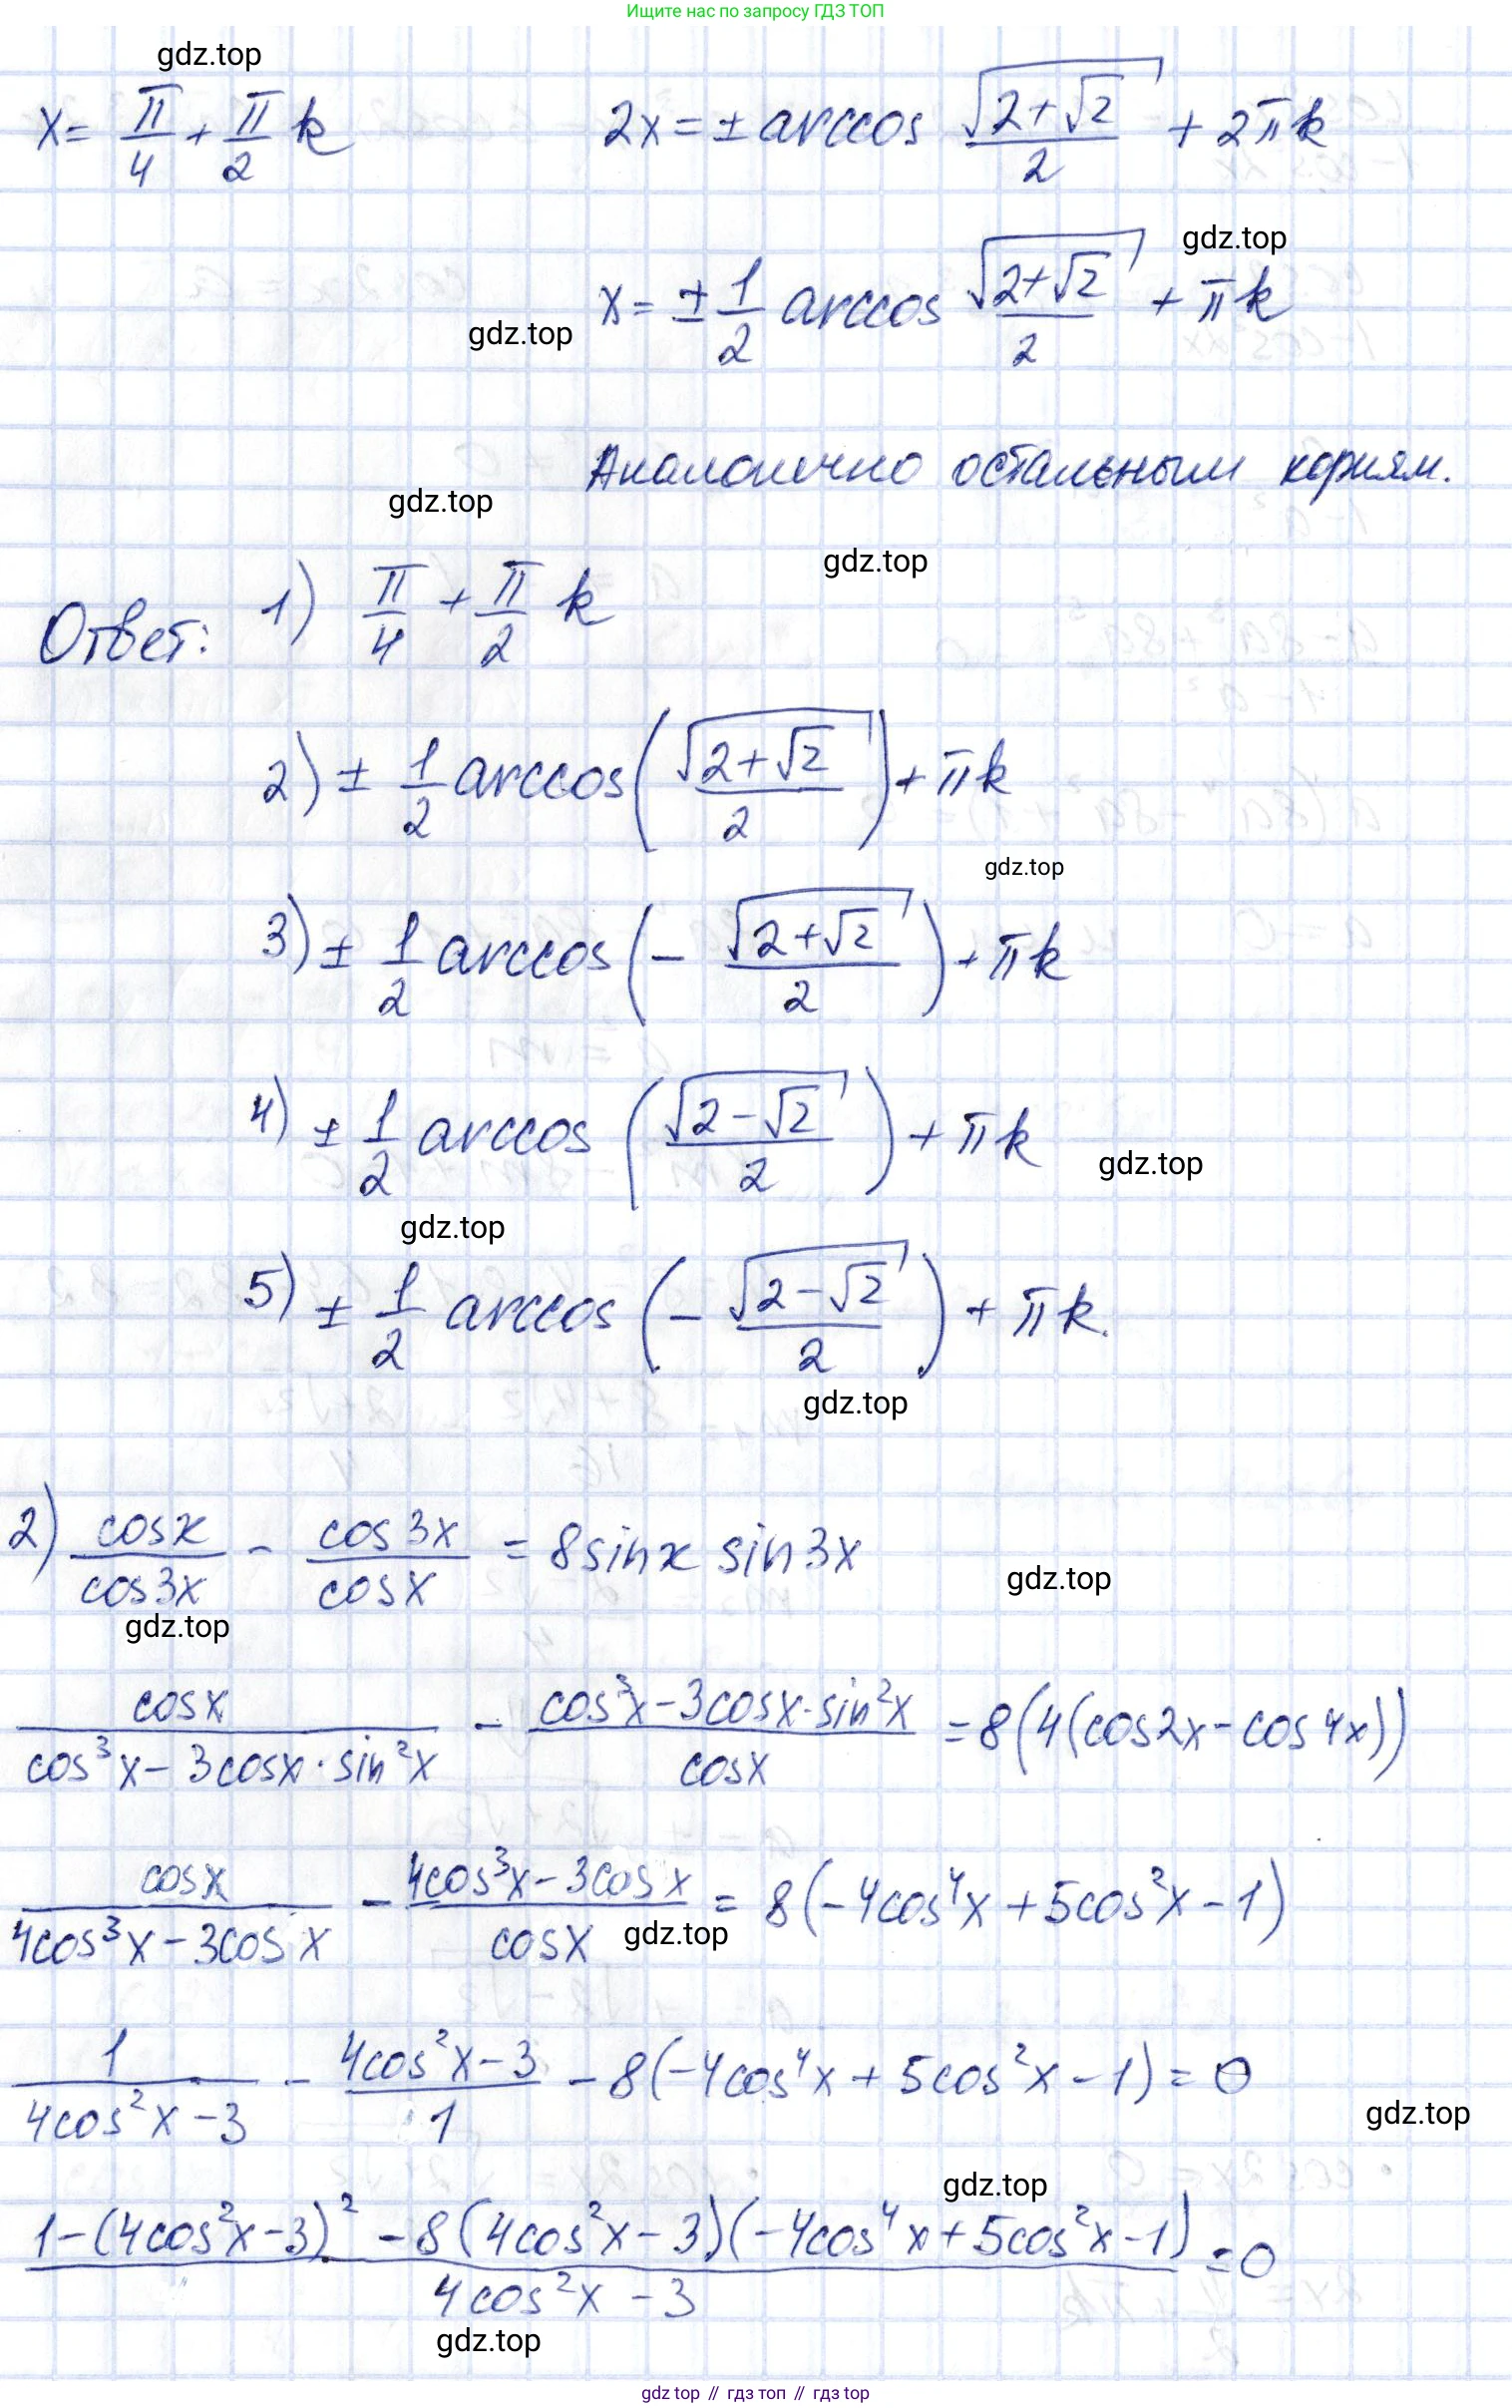 Ищите нас по запросу ГДЗ ТОП
gdz.top
x = π/4 + π/2 k    2x = ± arccos √(2+√2)/2 + 2πk
gdz.top
x = ± 1/2 arccos √(2+√2)/2 + πk
gdz.top
Аналогично остальным корням.
gdz.top
gdz.top
Ответ: 1) π/4 + π/2 k
2) ± 1/2 arccos(√(2+√2)/2) + πk
gdz.top
3) ± 1/2 arccos(- √(2+√2)/2) + πk
4) ± 1/2 arccos(√(2-√2)/2) + πk
gdz.top
gdz.top
5) ± 1/2 arccos(- √(2-√2)/2) + πk.
gdz.top
2) cosx/cos3x - cos3x/cosx = 8sinx sin3x
gdz.top
gdz.top
cosx/(cos³x - 3cosx·sin²x) - (cos³x - 3cosx·sin²x)/cosx = 8(4(cos2x - cos4x))
cosx/(4cos³x - 3cosx) - (4cos³x - 3cosx)/cosx = 8(-4cos⁴x + 5cos²x - 1)
gdz.top
1/(4cos²x - 3) - (4cos²x - 3)/1 - 8(-4cos⁴x + 5cos²x - 1) = 0
gdz.top
gdz.top
(1 - (4cos²x - 3)² - 8(4cos²x - 3)(-4cos⁴x + 5cos²x - 1))/(4cos²x - 3) = 0
gdz.top
gdz top // гдз топ // гдз top